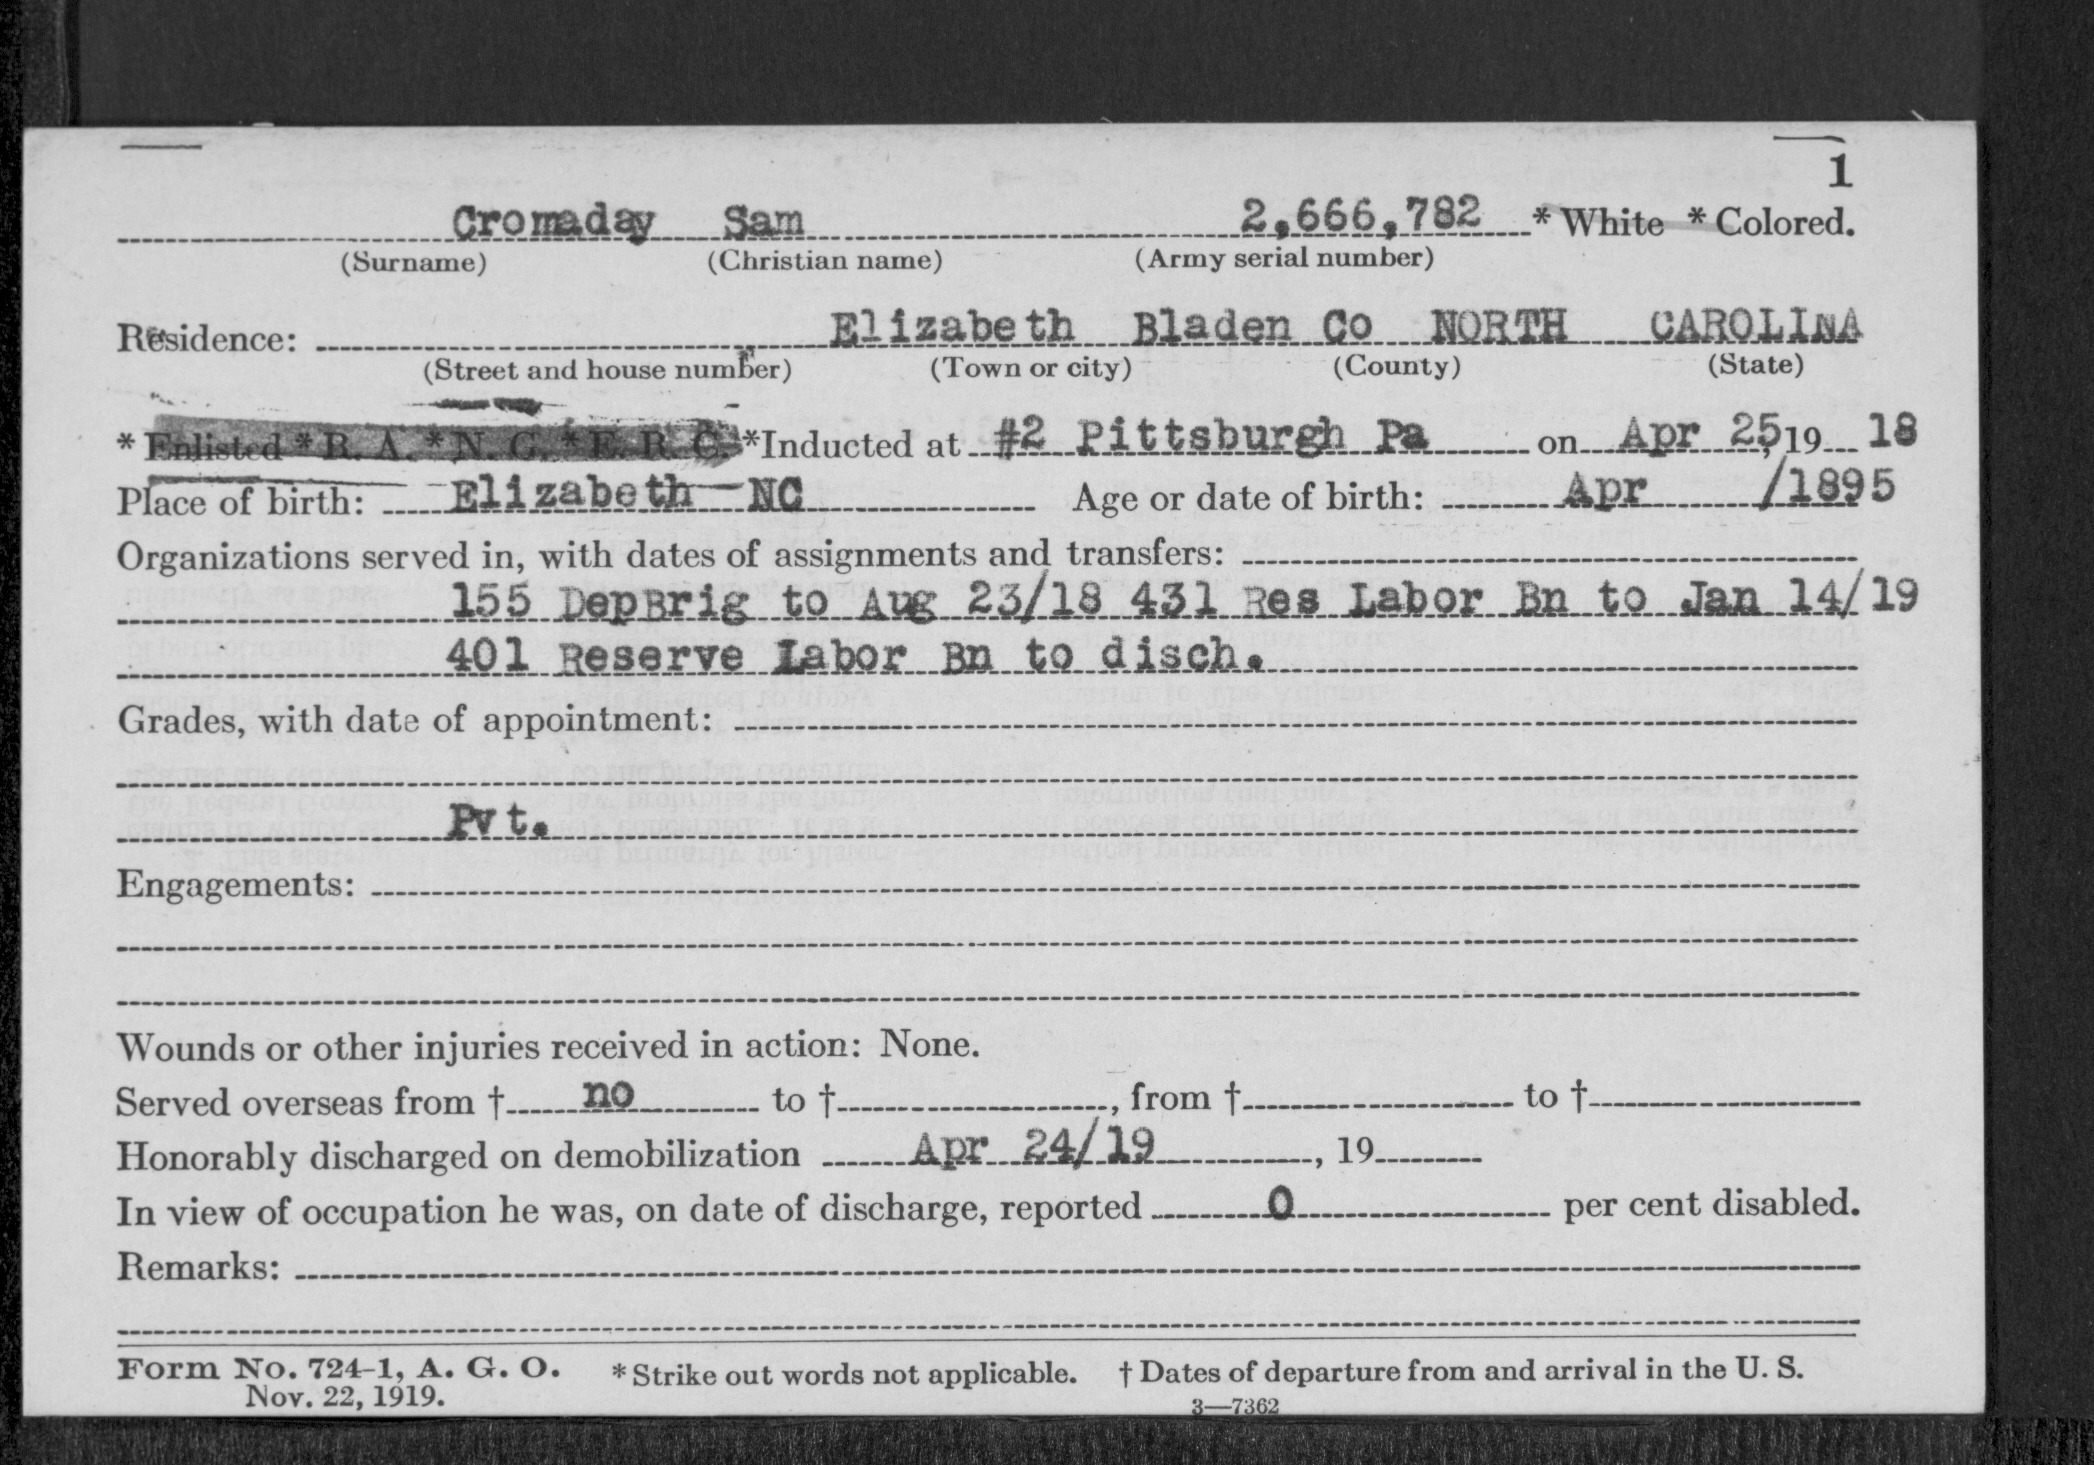 1
Cromaday Sam 2,666,782 * White * Colored.
(Surname) (Christian name) (Army serial number)
Residence: Elizabeth Bladen Co NORTH CAROLINA
(Street and house number) (Town or city) (County) (State)
* Enlisted * R. A. * N. G. * E. R. C. *Inducted at #2 Pittsburgh Pa on Apr 25, 19 18
Place of birth: Elizabeth NC Age or date of birth: Apr /1895
Organizations served in, with dates of assignments and transfers:
155 DepBrig to Aug 23/18 431 Res Labor Bn to Jan 14/19
401 Reserve Labor Bn to disch.
Grades, with date of appointment:
Pvt.
Engagements:
Wounds or other injuries received in action: None.
Served overseas from † no to †, from † to †
Honorably discharged on demobilization Apr 24/19, 19
In view of occupation he was, on date of discharge, reported 0 per cent disabled.
Remarks:
Form No. 724-1, A. G. O. * Strike out words not applicable. † Dates of departure from and arrival in the U. S.
Nov. 22, 1919. 3—7362